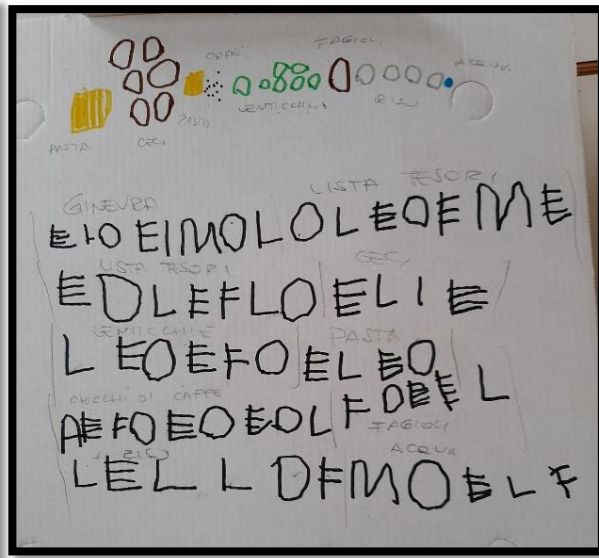 CAFFÈ FAGIOLI ACQUA
LENTICCHIE RISO
PASTA CECI PASTA
GINEVRA LISTA TESORI
EIOEIMOLOLEOEME
LISTA TESORI CECI
EOLEFLOELIE
LENTICCHIE PASTA
LEOEFOELEO
CHICCHI DI CAFFÈ
AEFOEOEOLFOEEL L
FAGIOLI
RISO ACQUA
LELLOFMOELF